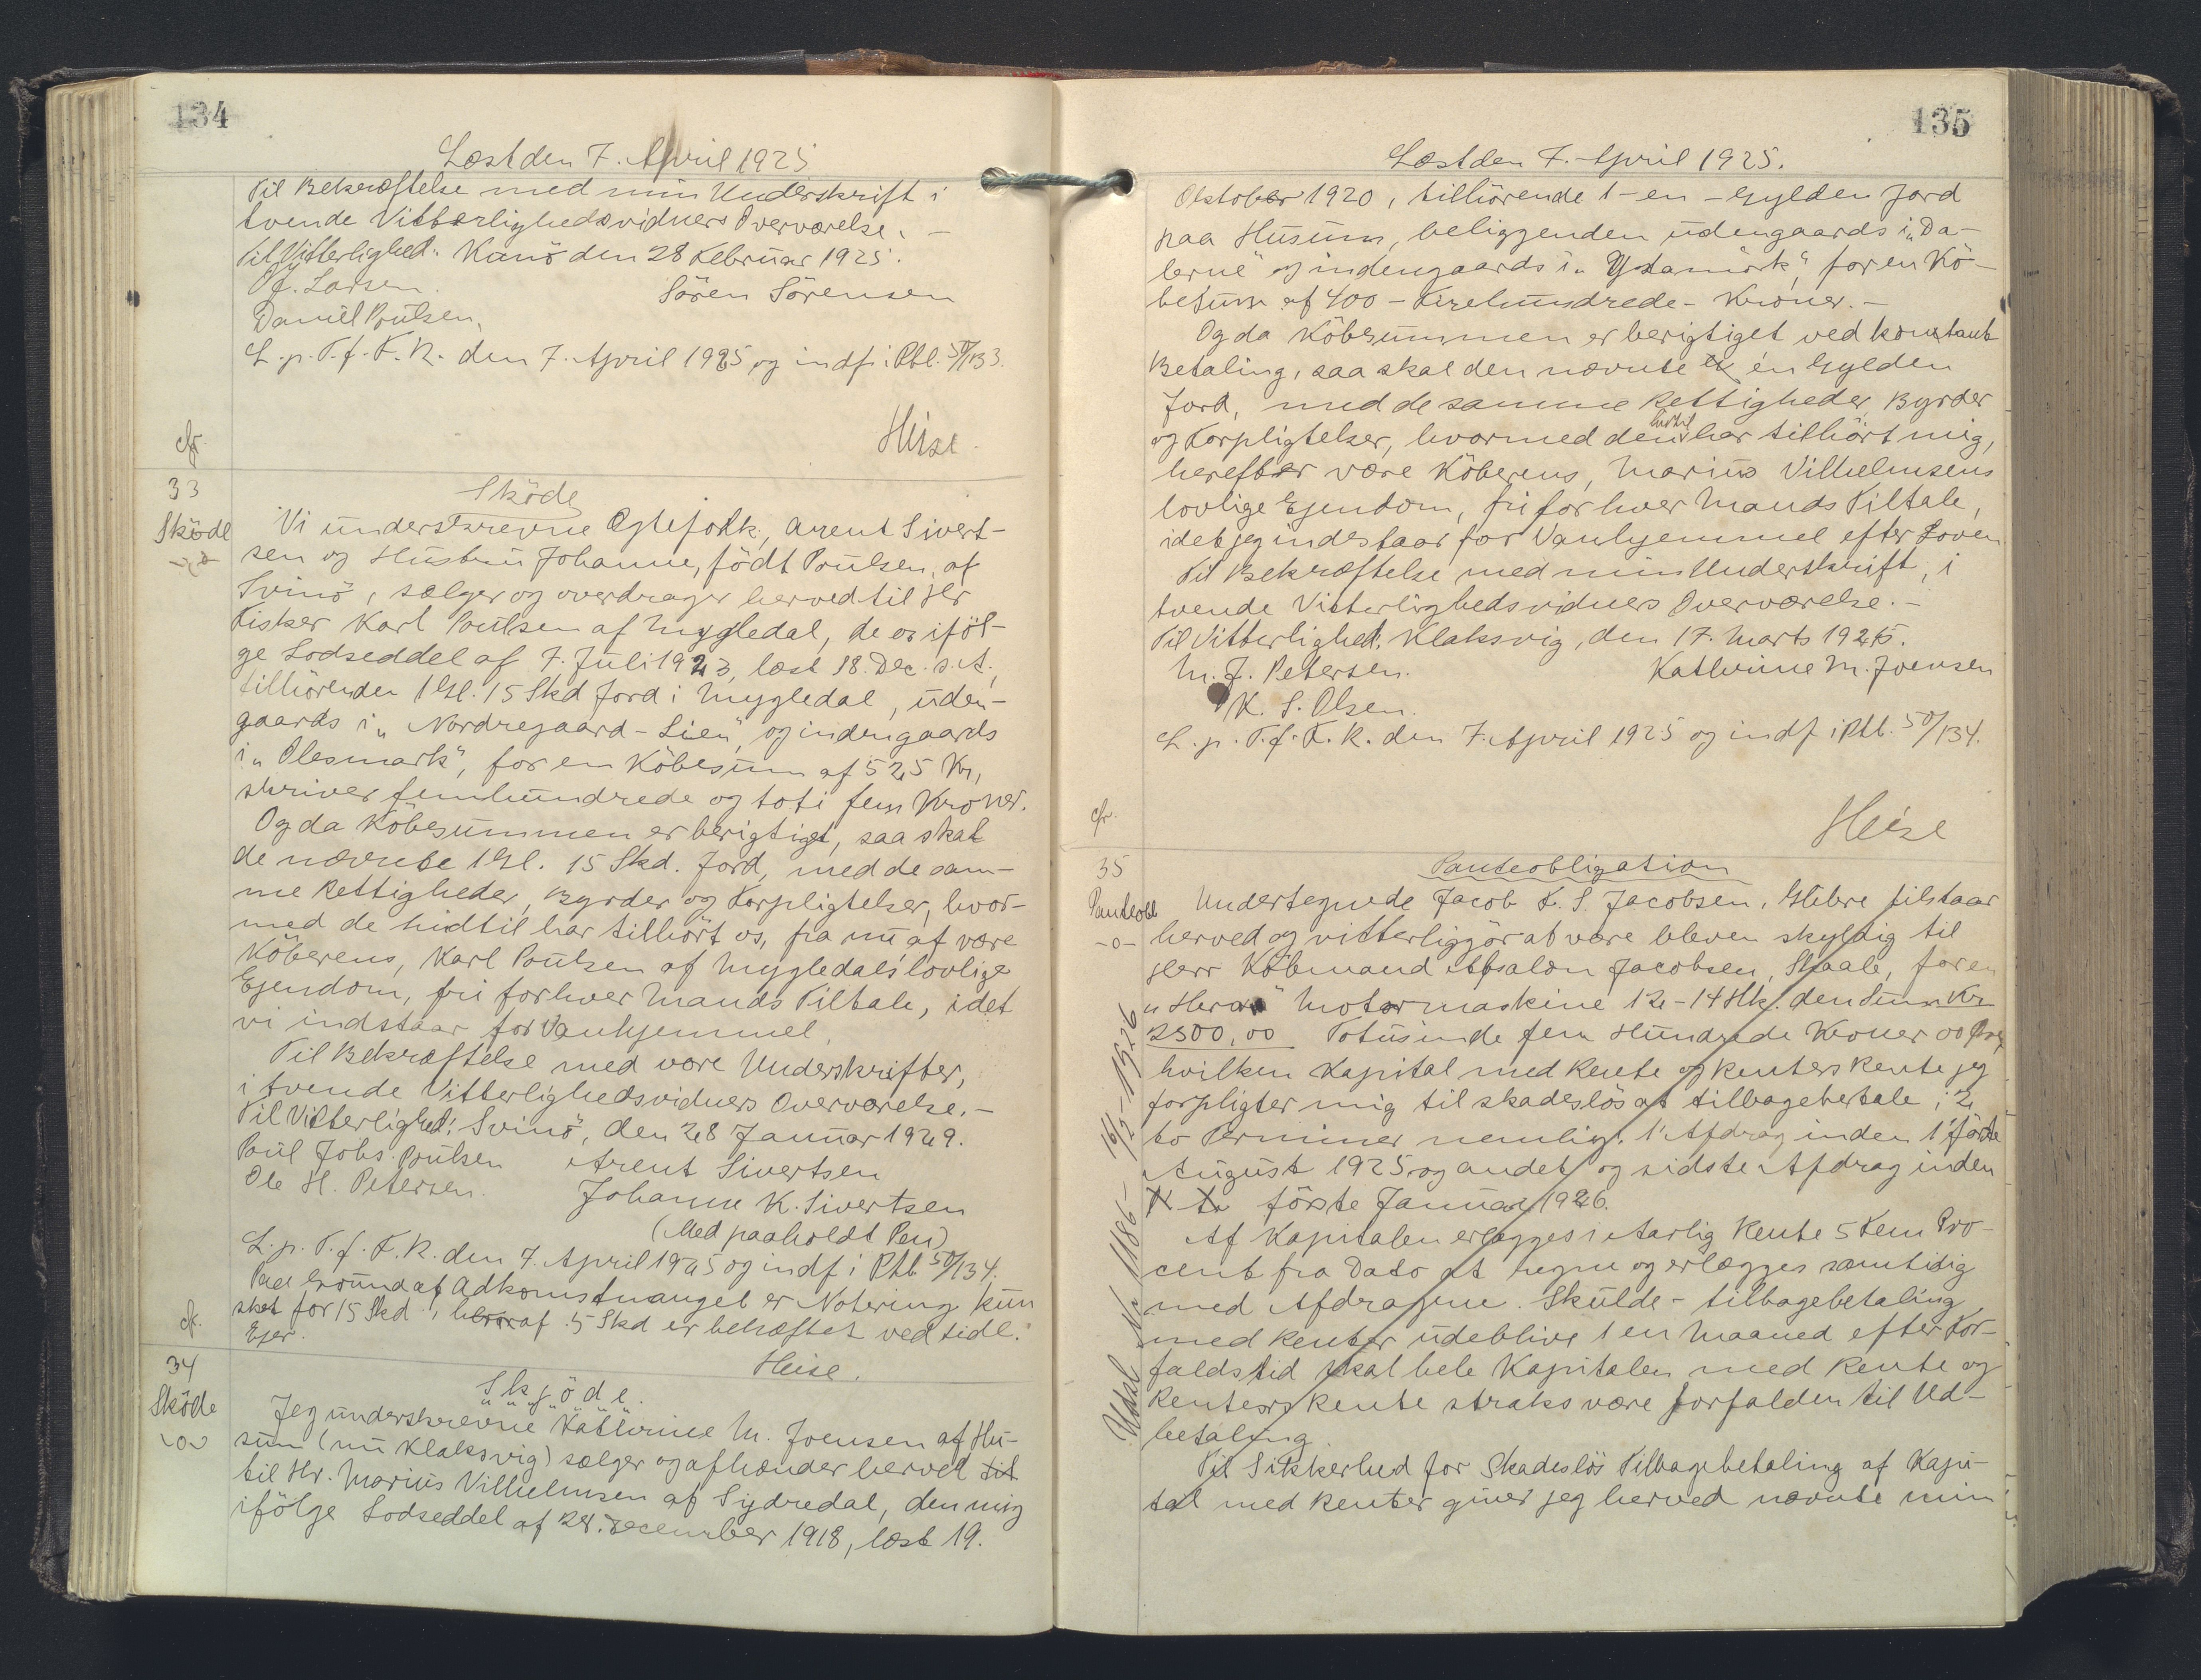 134
Læst den 7. April 1925
Til Bekræftelse med min Underskrift i
tvende Vitterlighedsvidners Overværelse. -
Til Vitterlighed. Kunö den 28 Februar 1925.
J. Larsen. Sören Sörensen
Daniel Poulsen.
L. p. T. f. F. R. den 7. April 1925 og indf i Rbl. 50/133.
cfr. Heise.
33 Sköde
Sköde Vi underskrevne Ægtefolk, Arent Sivert-
-o- sen og Hustru Johanne, födt Poulsen, af
Svinö, sælger og overdrager herved til Hr
Fisker Karl Poulsen af Mygledal, de os iföl-
ge Lodseddel af 7. Juli 1923, læst 18. Dec. s. A.,
tilhörenden 1 Gl. 15 Skd Jord i Mygledal, uden-
gaards i „Nordregaard-Lien", og indengaards
i „Olesmark", for en Köbesum af 525 Kr,
skriver femhundrede og toti fem Kroner.
Og da Köbesummen er berigtiget, saa skal
de nævnte 1 Gl. 15 Skd. Jord, med de sam-
me Rettigheder, Byrder og Forpligtelser, hvor-
med de hidtil har tilhört os, fra nu af være
Köberens, Karl Poulsen af Mygledals lovlige
Ejendom, fri for hver Mands Tiltale, idet
vi indstaar for Vanhjemmel.
Til Bekræftelse med vore Underskrifter,
i tvende Vitterlighedsvidners Overværelse. -
Til Vitterlighed: Svinö, den 28 Januar 1929.
Poul Johs. Poulsen Arent Sivertsen
Ole H. Petersen. Johanne K. Sivertsen
(Med paaholdt Pen)
L. p. T. f. F. R. den 7. April 1925 og indf i Rbl. 50/134.
Paa Grund af Adkomstmangel er Notering kun
sket for 15 Skd, hvoraf 5 Skd er behæftet ved tidl.
cfr. Ejer.
Heise.
34 Skjöde.
Sköde Jeg underskrevne Kathrine M. Joensen af Hu-
-o- sum (nu Klaksvig) sælger og afhænder herved til
til Hr. Marius Vilhelmsen af Sydredal, den mig
ifölge Lodseddel af 28. December 1918, læst 19.
135
Læst den 7. April 1925.
Oktober 1920, tilhörende 1 - en - Gylden Jord
paa Husum, beliggenden udengaards i „Da-
lerne" og indengaards i „Ydamörk", for en Kö-
besum af 400 - Firehundrede - Kroner. -
Og da Köbesummen er berigtiget ved kontant
Betaling, saa skal den nævnte én Gylden
Jord, med de samme Rettigheder, Byrder
og Forpligtelser, hvormed den hidtil har tilhört mig,
herefter være Köberens, Marius Vilhelmsens
lovlige Ejendom, fri for hver Mands Tiltale,
idet jeg indestaar for Vanhjemmel efter Loven
Til Bekræftelse med min Underskrift, i
tvende Vitterlighedsvidners Overværelse. -
Til Vitterlighed. Klaksvig, den 17. Marts 1925.
M. J. Petersen. Kathrine M. Joensen
K. S. Olsen.
L. p. T. f. F. R. den 7. April 1925 og indf i Rbl. 50/134.
cfr. Heise
35 Panteobligation
Panteobl Undertegnede Jacob F. S. Jacobsen, Glibre tilstaar
-o- herved og vitterliggör at være bleven skyldig til
Herr Köbmand Absalon Jacobsen, Skaale, for en
Motormaskine 12-14 Hk. den Sum Kr
2500,00 Totusinde fem Hundrede Kroner 00 Öre,
hvilken Kapital med Rente og Renters Rente jeg
forpligter mig til skadeslös at tilbagebetale i 2
to Terminer nemlig: 1' Afdrag inden 1' förste
August 1925 og andet og sidste Afdrag inden
förste Januar 1926.
Af Kapitalen erlægges i Aarlig Rente 5 Fem Pro-
cent fra Dato at regne og erlægges samtidig
med Afdragene. Skulde - tilbagebetaling
med Renter udeblive 1 en Maaned efter For-
faldstid skal hele Kapitalen med Rente og
Renters Rente straks være forfalden til Ud-
betaling
Til Sikkerhed for Skadeslös Tilbagebetaling af Kapi-
tal med Renter giver jeg herved nævnte min
Udsl. No 1186 - 16/5-1526